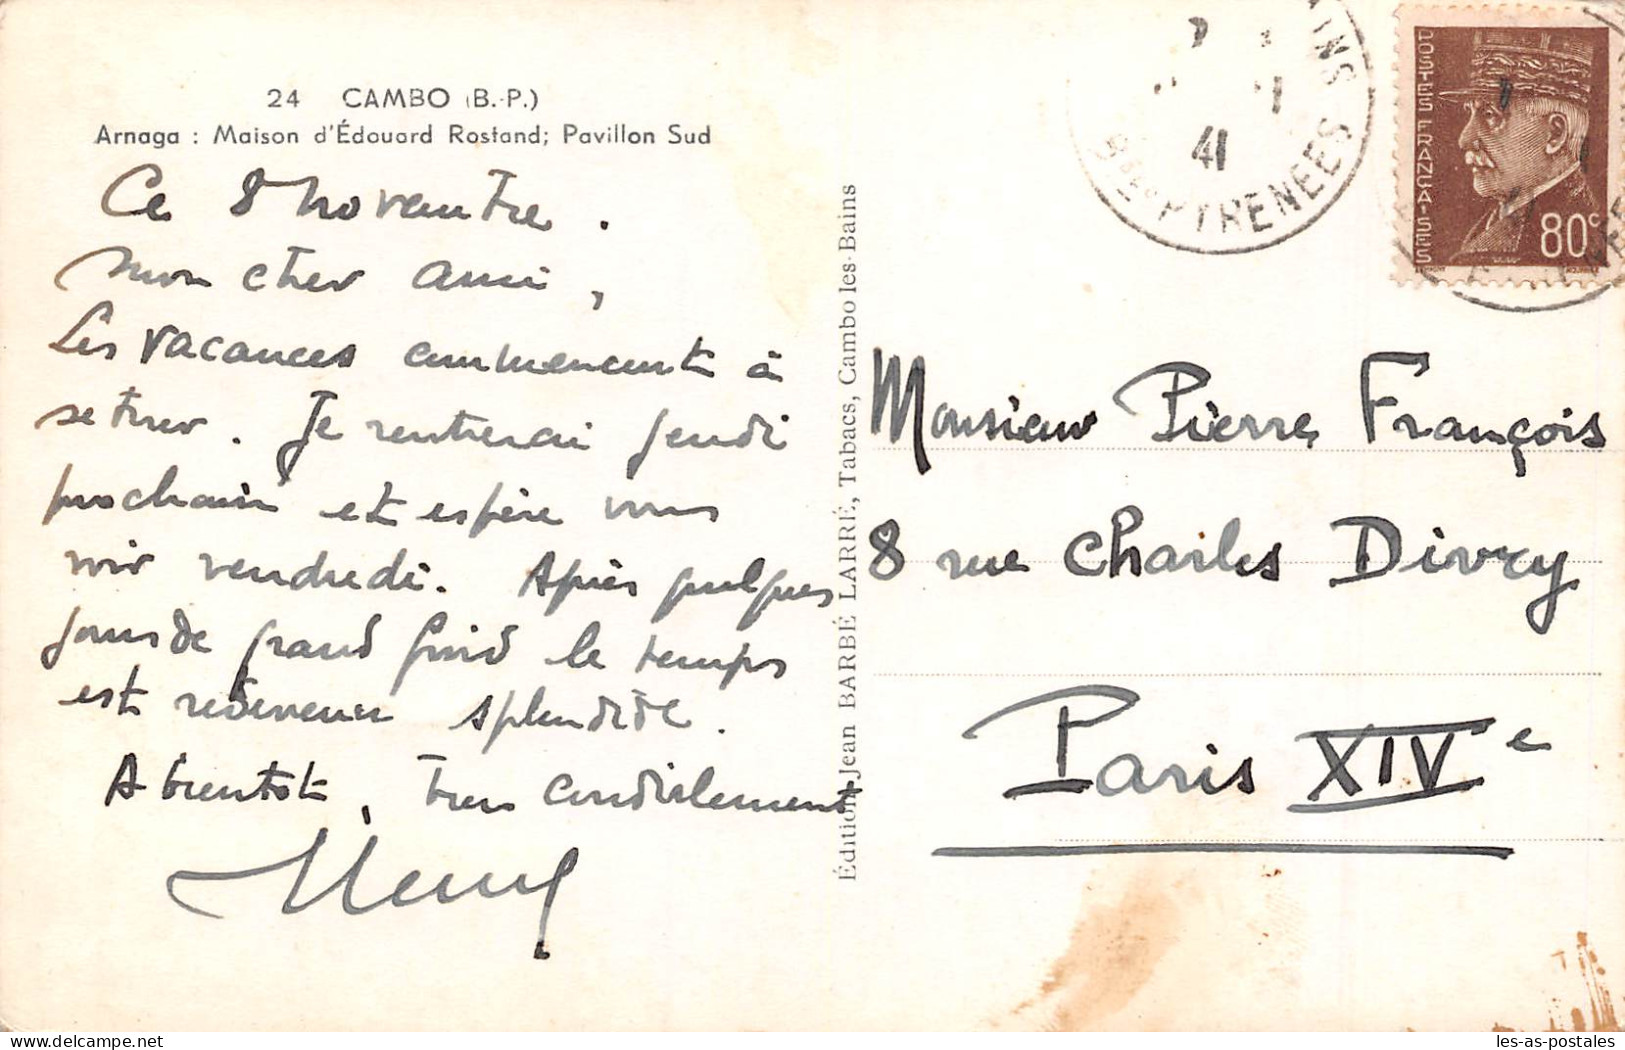 24 CAMBO (B.-P.)
Arnaga : Maison d'Édouard Rostand; Pavillon Sud
Ce 8 novembre.
Mon cher ami,
Les vacances commencent à
se tirer. Je rentrerai jeudi
prochain et espère vous
voir vendredi. Après quelques
jours de grand froid le temps
est redevenu splendide.
A bientôt, très cordialement
Édition Jean BARBÉ LARRÉ, Tabacs, Cambo les-Bains
AINS
41
Bses PYRENEES
POSTES FRANÇAISES
80c
Monsieur Pierre François
8 rue Charles Divry
Paris XIVe
les-as-postales